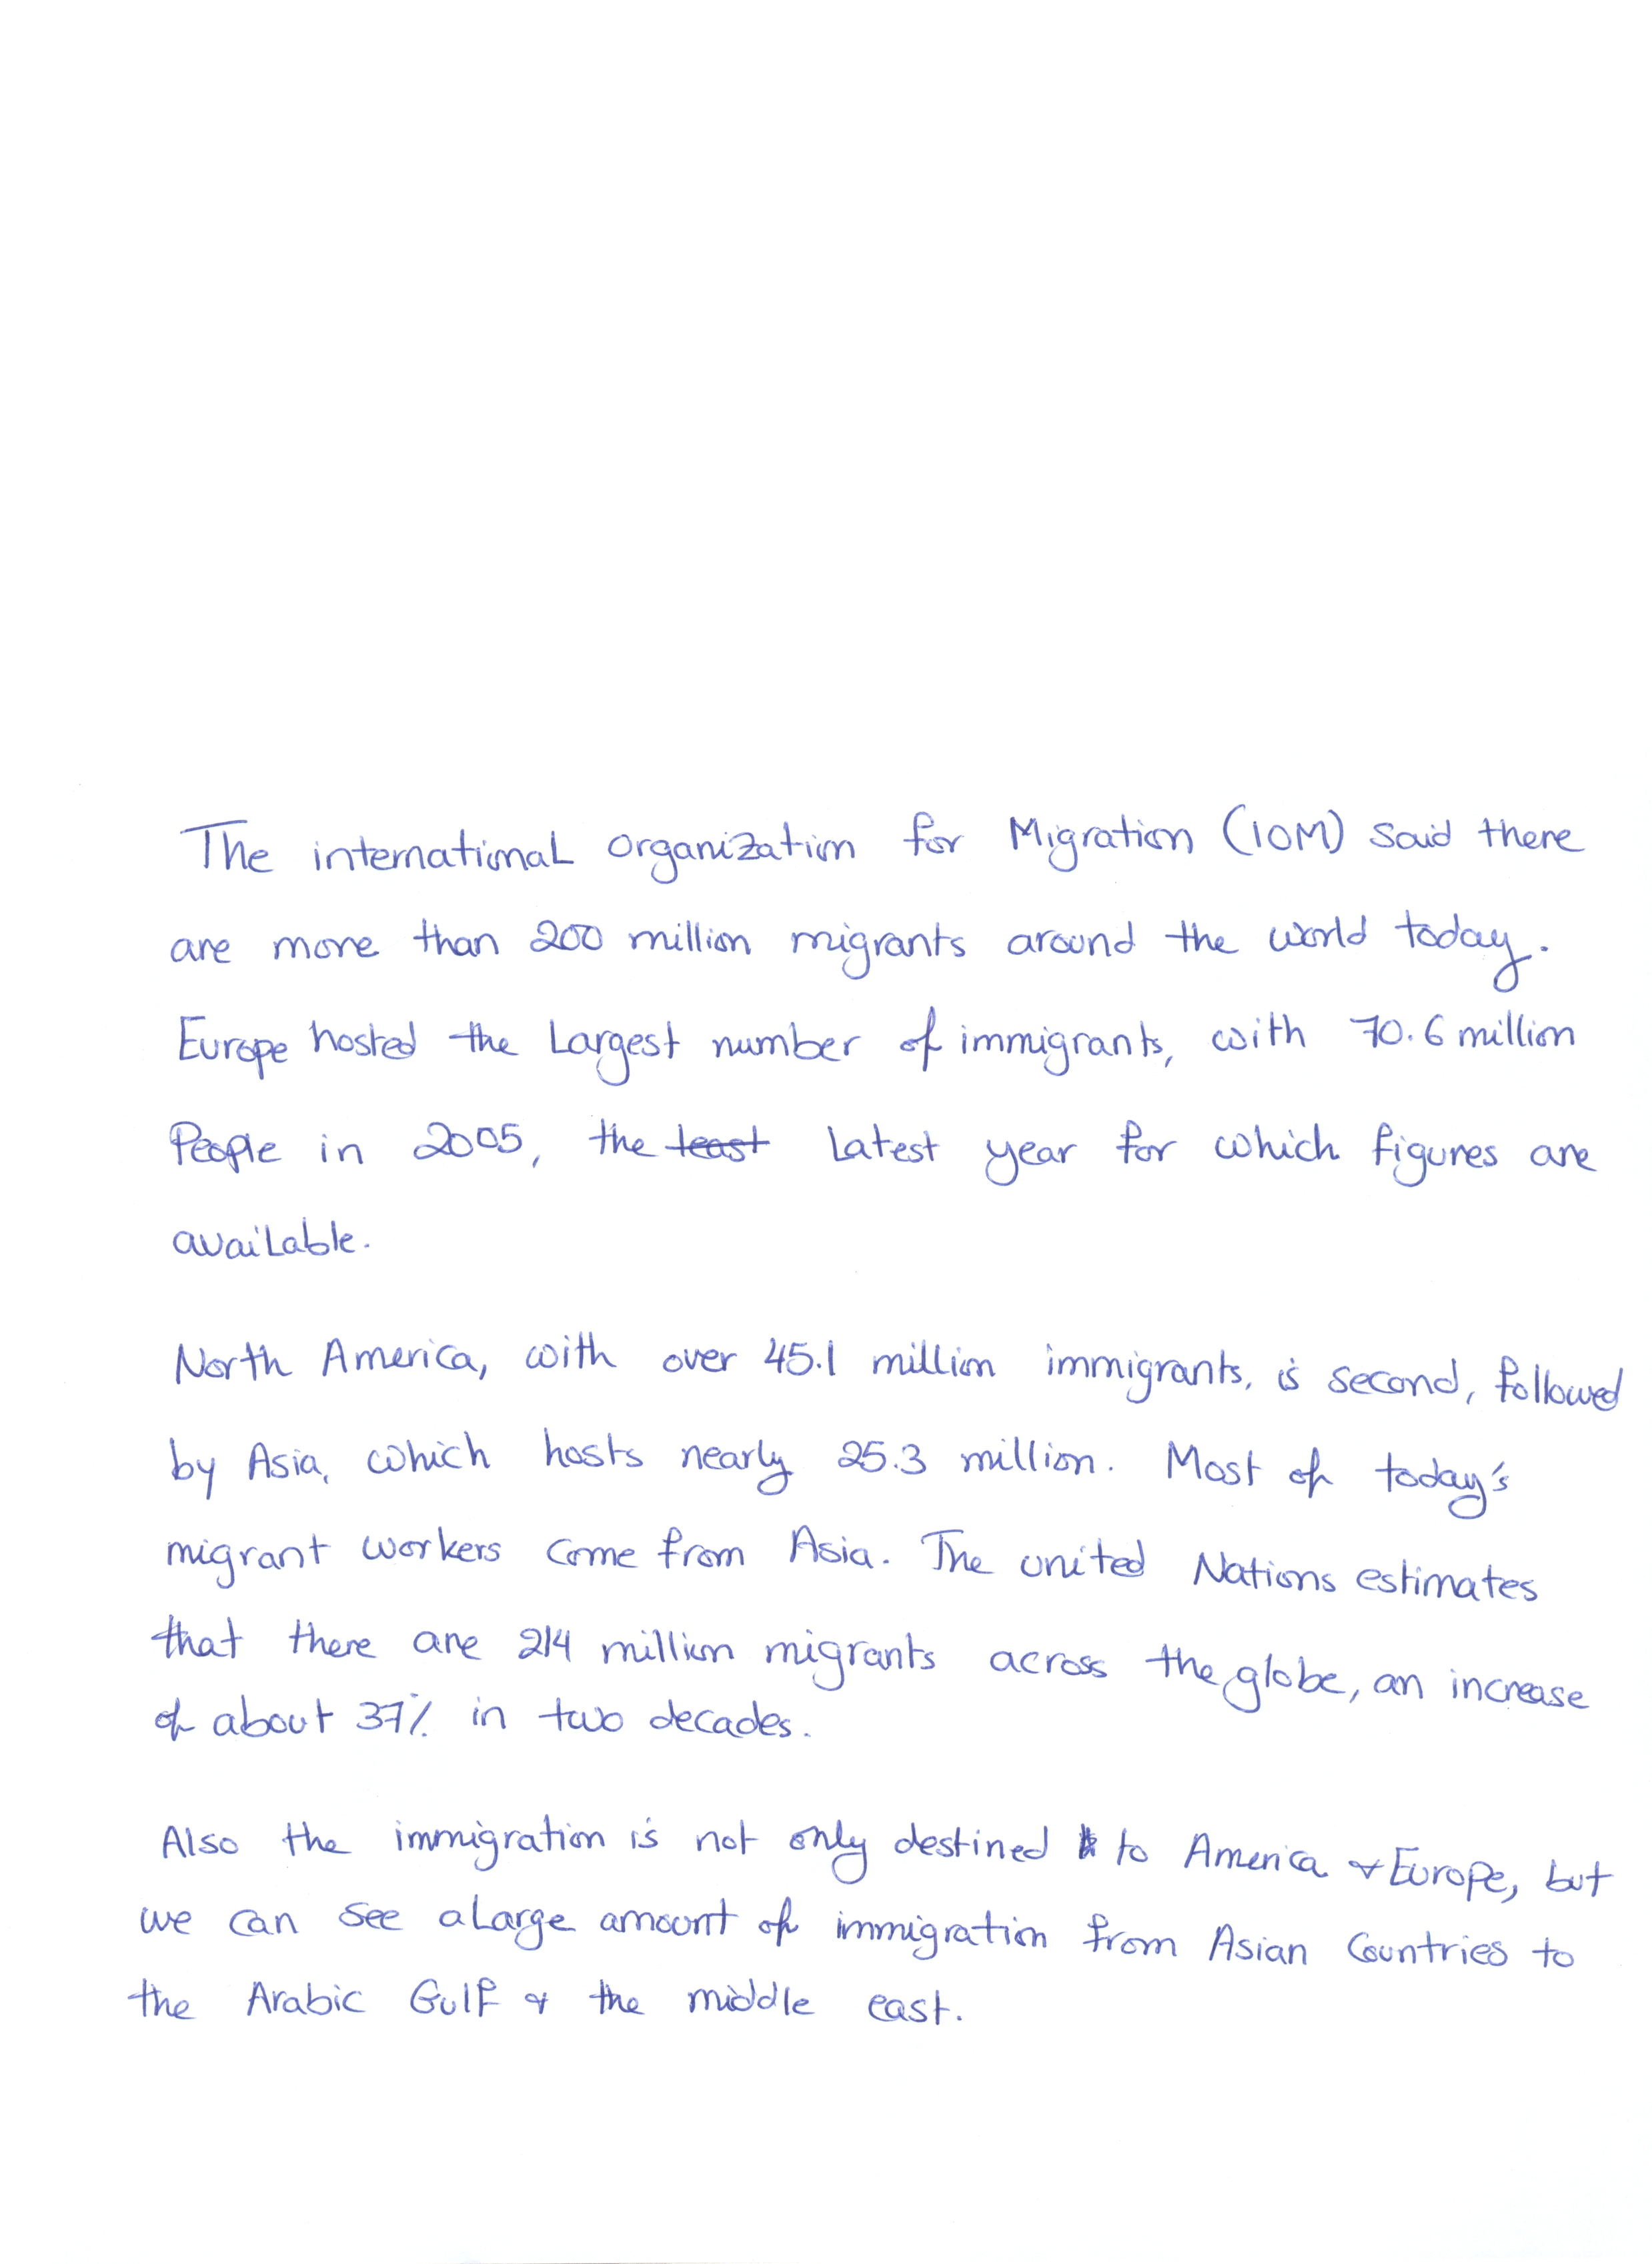 The international organization for Migration (IOM) said there
are more than 200 million migrants around the world today.
Europe hosted the Largest number of immigrants, with 70.6 million
People in 2005, the least Latest year for which figures are
available.
North America, with over 45.1 million immigrants, is second, followed
by Asia, which hosts nearly 25.3 million. Most of today's
migrant workers come from Asia. The united Nations estimates
that there are 214 million migrants across the globe, an increase
of about 37% in two decades.
Also the immigration is not only destined to America & Europe, but
we can see a Large amount of immigration from Asian Countries to
the Arabic Gulf & the middle east.